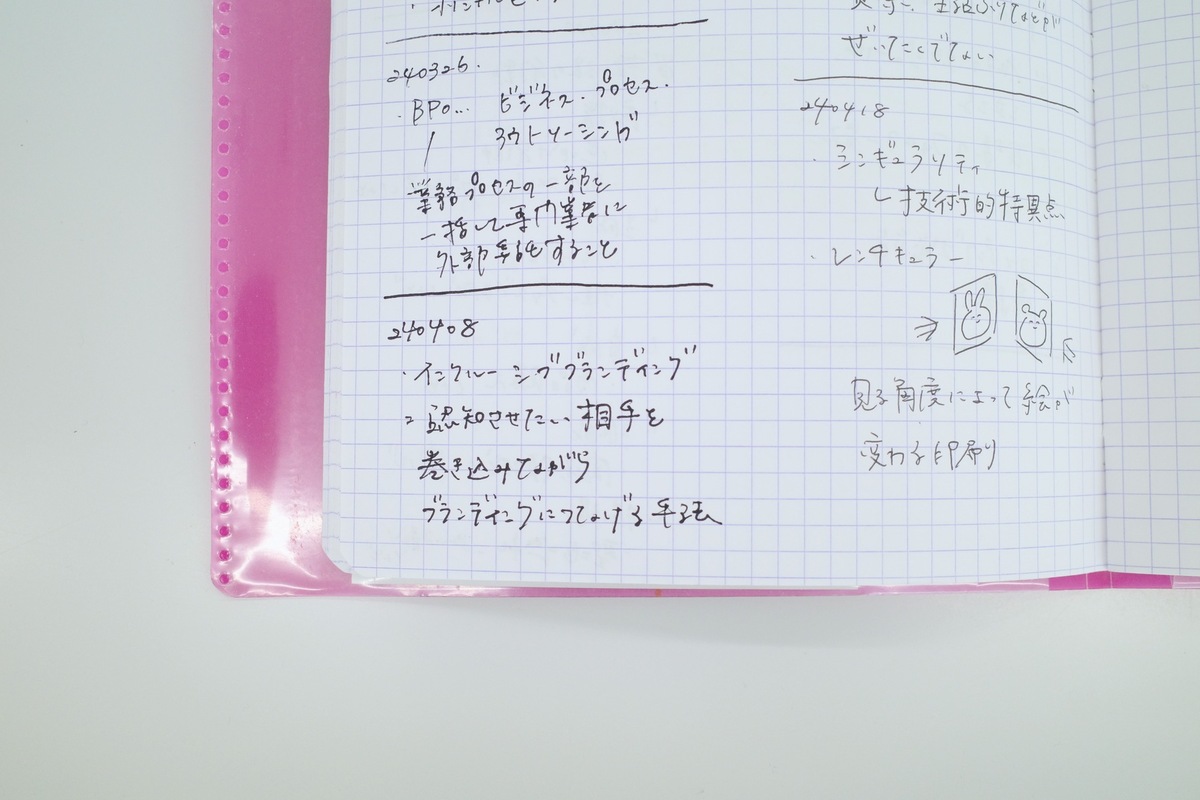 240326.
・BPO… ビジネス・プロセス・
アウトソーシング
業務プロセスの一部を
一括して専門業者に
外部委託をすること
240408
・インクルーシブブランディング
= 認知させたい相手を
巻き込みながら
ブランディングにつなげる手法
ぜいたくでない
240418
・シンギュラリティ
技術的特異点
・レンチキュラー
見る角度によって絵が
変わる印刷